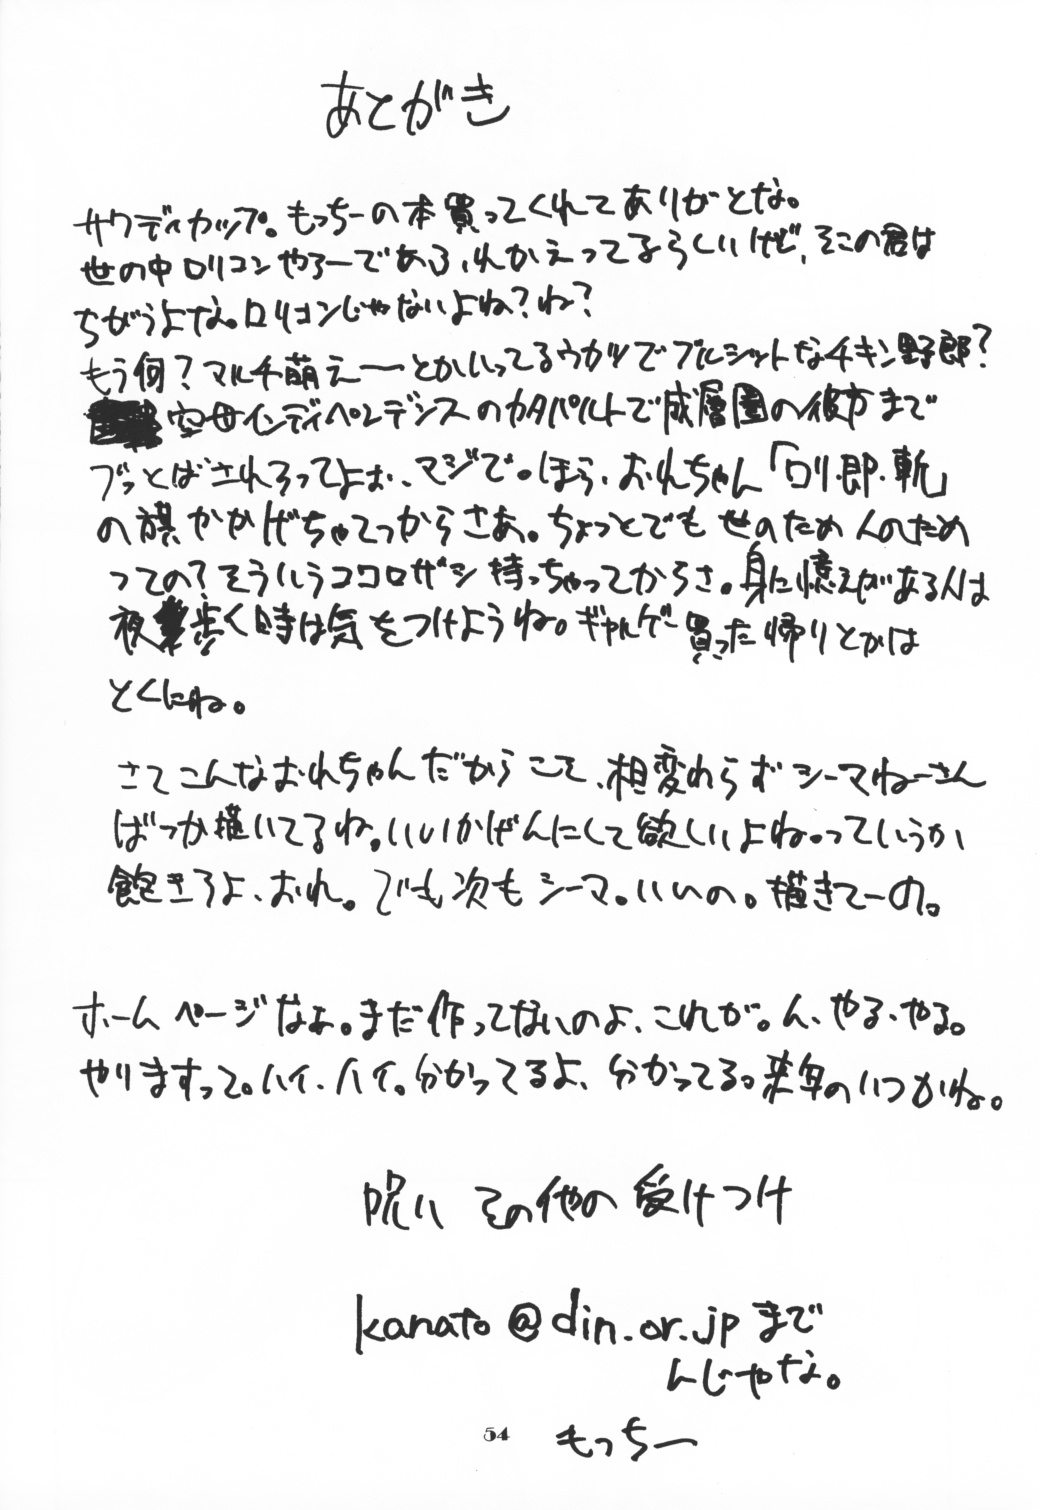 あとがき
サウディカップ。もっちーの本買ってくれてありがとな。
世の中ロリコンやろーであふれかえってるらしいけど、そこの君は
ちがうよな。ロリコンじゃないよね？ね？
もう何？マルチ萌えーとかいってるウカツでブルシットなチキン野郎？
空母インディペンデンスのカタパルトで成層圏の彼方まで
ブッとばされろってよぉ、マジで。ほら、おれちゃん「ロリ・即・斬」
の旗かかげちゃてっからさあ。ちょっとでも世のため人のため
っての？そういうココロザシ持っちゃってからさ。身に憶えがある人は
夜歩く時は気をつけようね。ギャルゲー買った帰りとかは
とくにね。
さてこんなおれちゃんだからこそ、相変わらずシーマねーさん
ばっか描いてるね。いいかげんにして欲しいよね。っていうか
飽きろよ、おれ。でも次もシーマ。いいの。描きてーの。
ホームページなぁ。まだ作ってないのよ、これが。ん、やる、やる。
やりますって。ハイ、ハイ。分かってるよ、分かってる。来年のいつかね。
呪い その他の受けつけ
kanato@din.or.jpまで
んじゃな。
54 もっちー